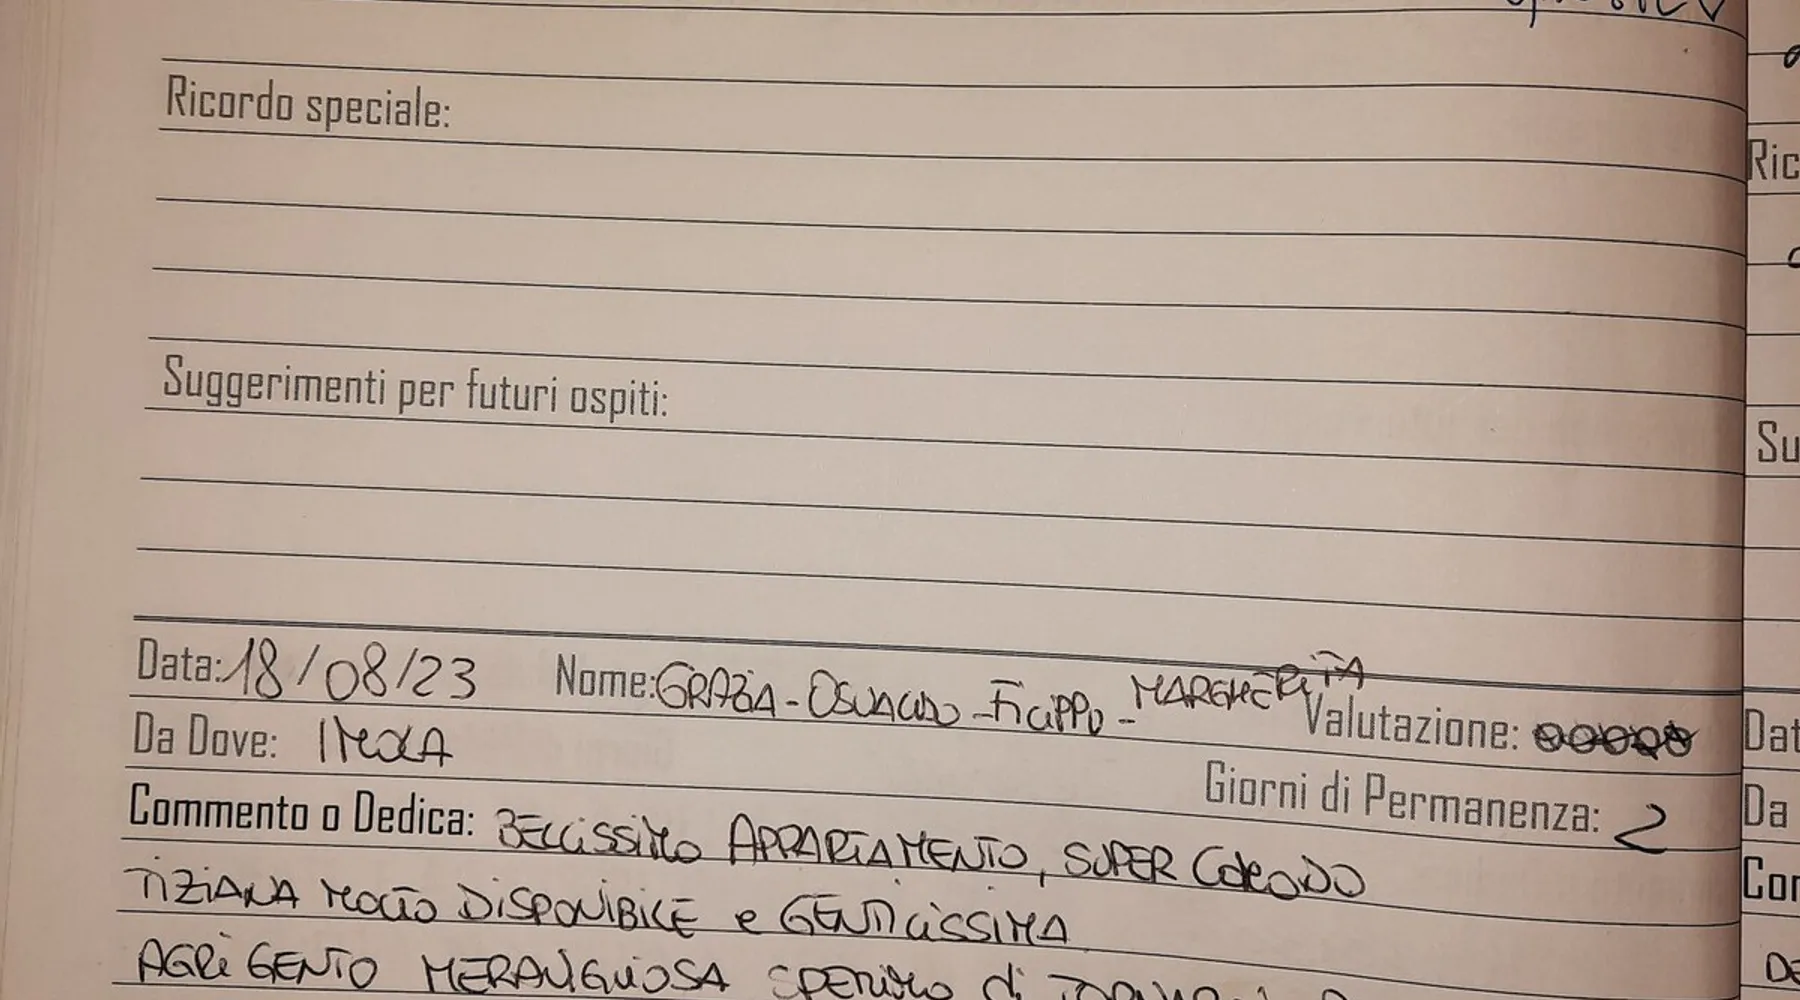 Ricordo speciale:
Suggerimenti per futuri ospiti:
Data: 18/08/23 Nome: GRAZIA - OSWALDO - FILIPPO - MARGHERITA Valutazione:
Da Dove: IMOLA
Giorni di Permanenza: 2
Commento o Dedica: BELLISSIMO APPARTAMENTO, SUPER COMODO
TIZIANA MOLTO DISPONIBILE e GENTILISSIMA
AGRIGENTO MERAVIGLIOSA SPERIAMO di TORNARCI
Ric
Su
Dat
Da
Com